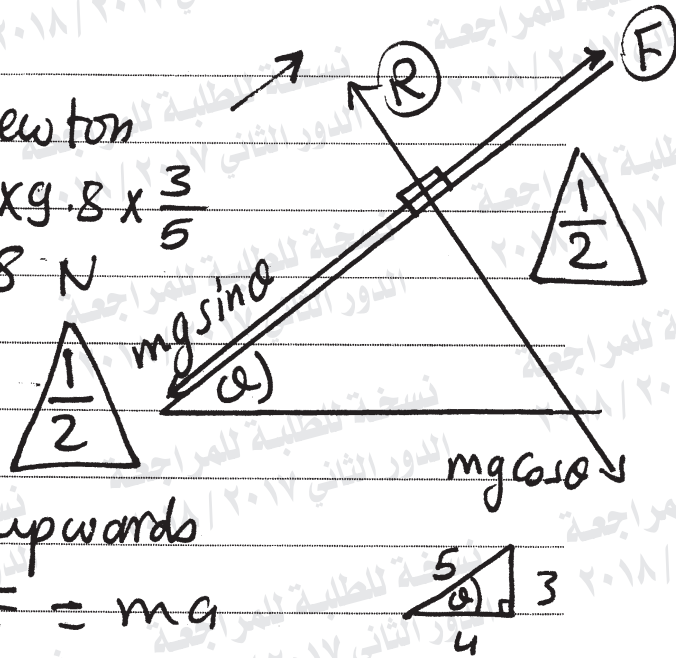 ewton
x9.8 x 3/5
8 N
R
F
1/2
mg sinθ
θ
1/2
mg cosθ
upwards
= ma
5
θ
3
4
نسخة للطلبة للمراجعة
الدور الثاني ٢٠١٧ / ٢٠١٨